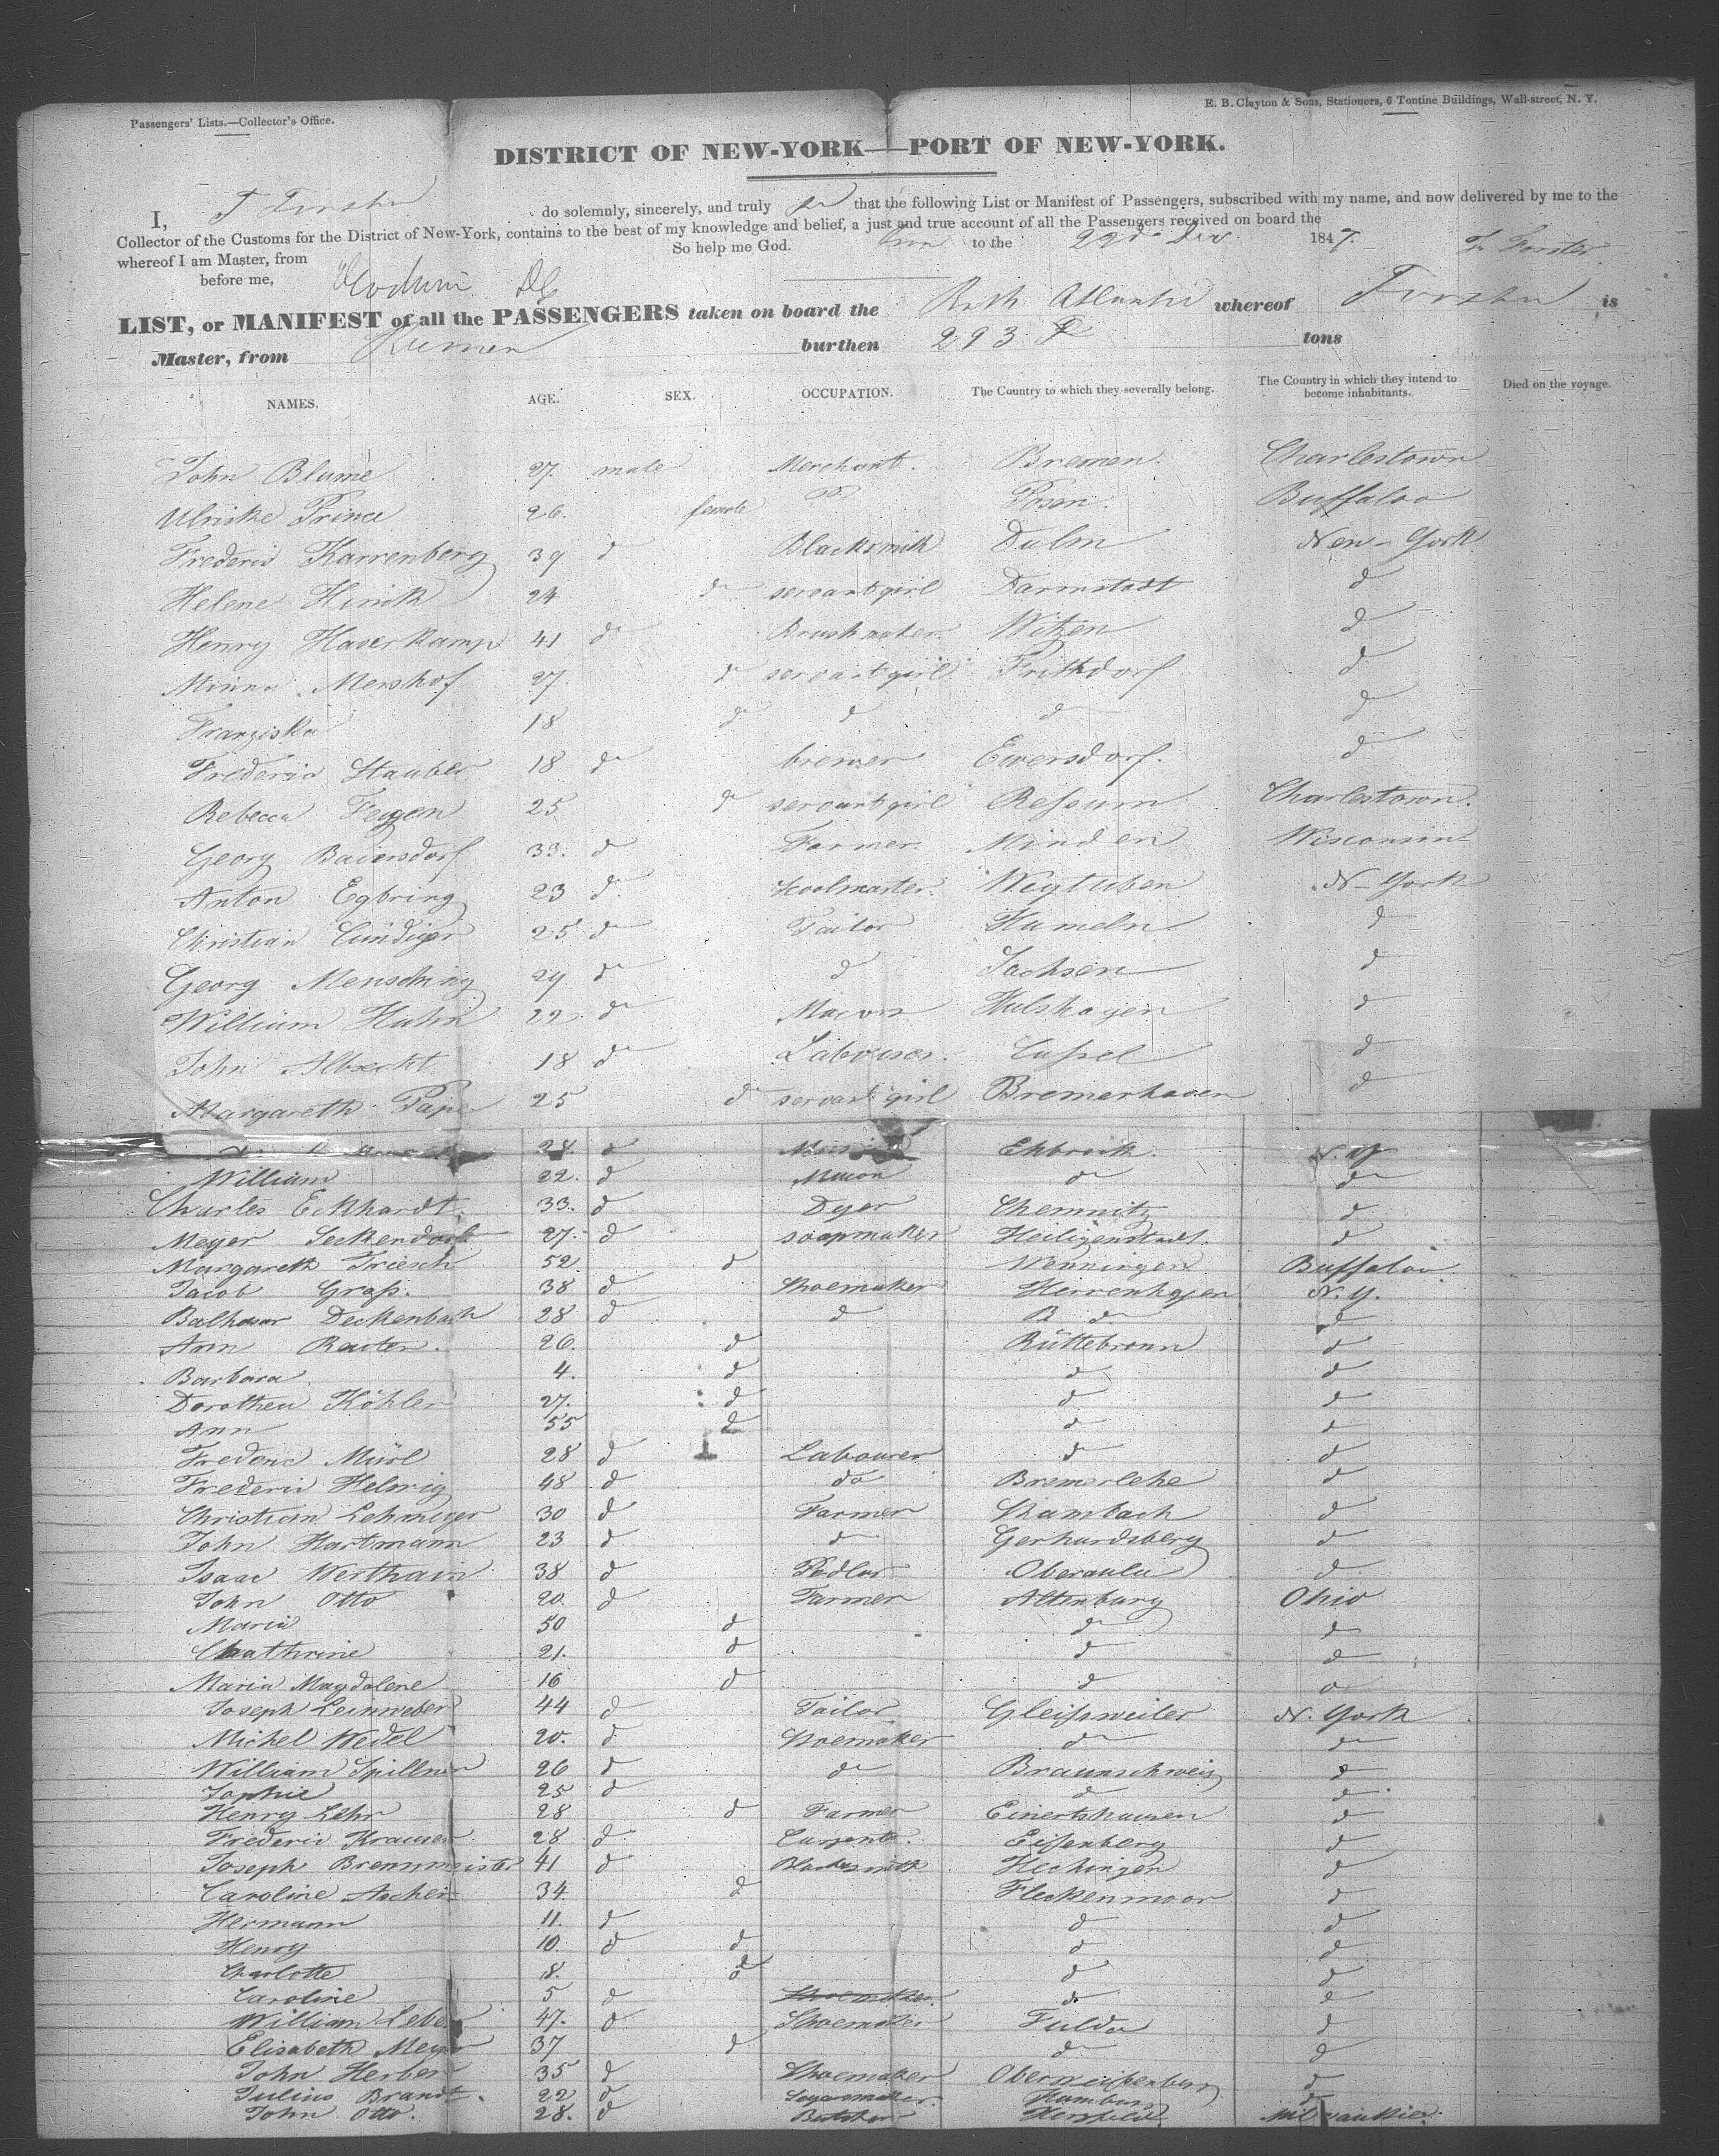 Passengers' Lists.—Collector's Office.
E. B. Clayton & Sons, Stationers, 6 Tontine Buildings, Wall-street, N. Y.
DISTRICT OF NEW-YORK—PORT OF NEW-YORK.
I, do solemnly, sincerely, and truly that the following List or Manifest of Passengers, subscribed with my name, and now delivered by me to the
Collector of the Customs for the District of New-York, contains to the best of my knowledge and belief, a just and true account of all the Passengers received on board the
whereof I am Master, from So help me God. to the 22d Dec. 1847.
before me,
LIST, or MANIFEST of all the PASSENGERS taken on board the Atlantic whereof is
Master, from burthen 293 tons
NAMES. AGE. SEX. OCCUPATION. The Country to which they severally belong. The Country in which they intend to become inhabitants. Died on the voyage.
John Blume 27. male Merchant. Bremen. Charlestown
Ulricke Prince 26. female Posen. Buffaloo
Frederic Karrenberg 39 d Blacksmith Dulm New-York
Helene 24 d servantgirl Darmstadt d
Henry Haverkamp 41 d Brushmaker Witzen d
Minna Mershof 27. d servantgirl Frithdorf d
Franziska 18 d d d d
Frederic Stauber 18 d brewer Eversdorf. d
Rebecca Feygen 25 d servantgirl Reſsum Charlestown.
Georg Baiersdorf 33. d Farmer. Minden Wisconsin
Anton Egbring 23 d Scoolmaster. N-York
Christian 25 d Tailor Hameln d
Georg Mensching 29 d d Sachsen d
William Hahn 22. d Macon Hulshagen d
John Albrecht 18 d Labourer. Caſsel d
Margareth Pape 25 d servantgirl Bremerhaven d
28. d N.Y
William 22. d Macon d d
Charles Eckhardt. 33. d Dyer Chemnitz d
Meyer Seckendorf 27. d soapmaker Heiligenstadt. d
Margareth Triesch 52. d Wenningen Buffaloo
Jacob Graſs. 38 d Shoemaker Herrenhagen N.Y.
Balhasar Deckenbach 28 d d d d
Ann Reuter. 26. d Rüttebronn d
Barbara 4. d d d
Dorothea Köhler 27. d d d
Ann 55 d d d
Frederic Mürl 28 d Labourer d d
Frederic Helwig 48 d do Bremerlehe d
Christian Lehmeyer 30 d Farmer Shambach d
John Hartmann 23 d d Gerhardsberg d
Isaac Wertham 38 d Pedlar Oberaula d
John Otto 20. d Farmer Altenburg Ohio
Maria 50 d d d
Chathrine 21. d d d
Maria Magdalene 16 d d d
Joseph Leinweber 44 d Tailor Gleiſsweiler N. York
Michel Wedel 20. d Shoemaker d d
William Spillner 26 d d Braunschweig d
Sophie 25 d d d
Henry Lehr 28 d Farmer Einertshausen d
Frederic Krausen 28 d Eiſsenberg d
Joseph Brennmeister 41 d Blacksmith Hechingen d
Caroline Ascher 34 d Fleckenmoor d
Hermann 11. d d d
Henry 10. d d d d
Charlotte 8. d d d
Caroline 5 d Shoemaker. d d
William Leber 47. d Shoemaker Fulda d
Elisabeth Meyer 37 d d d
John Herber 35 d Shoemaker Oberweiſsenburg d
Julius Brandt. 22 d Hamburg d
John Otto. 28. d Butcher Hersfeld Milwaukie.